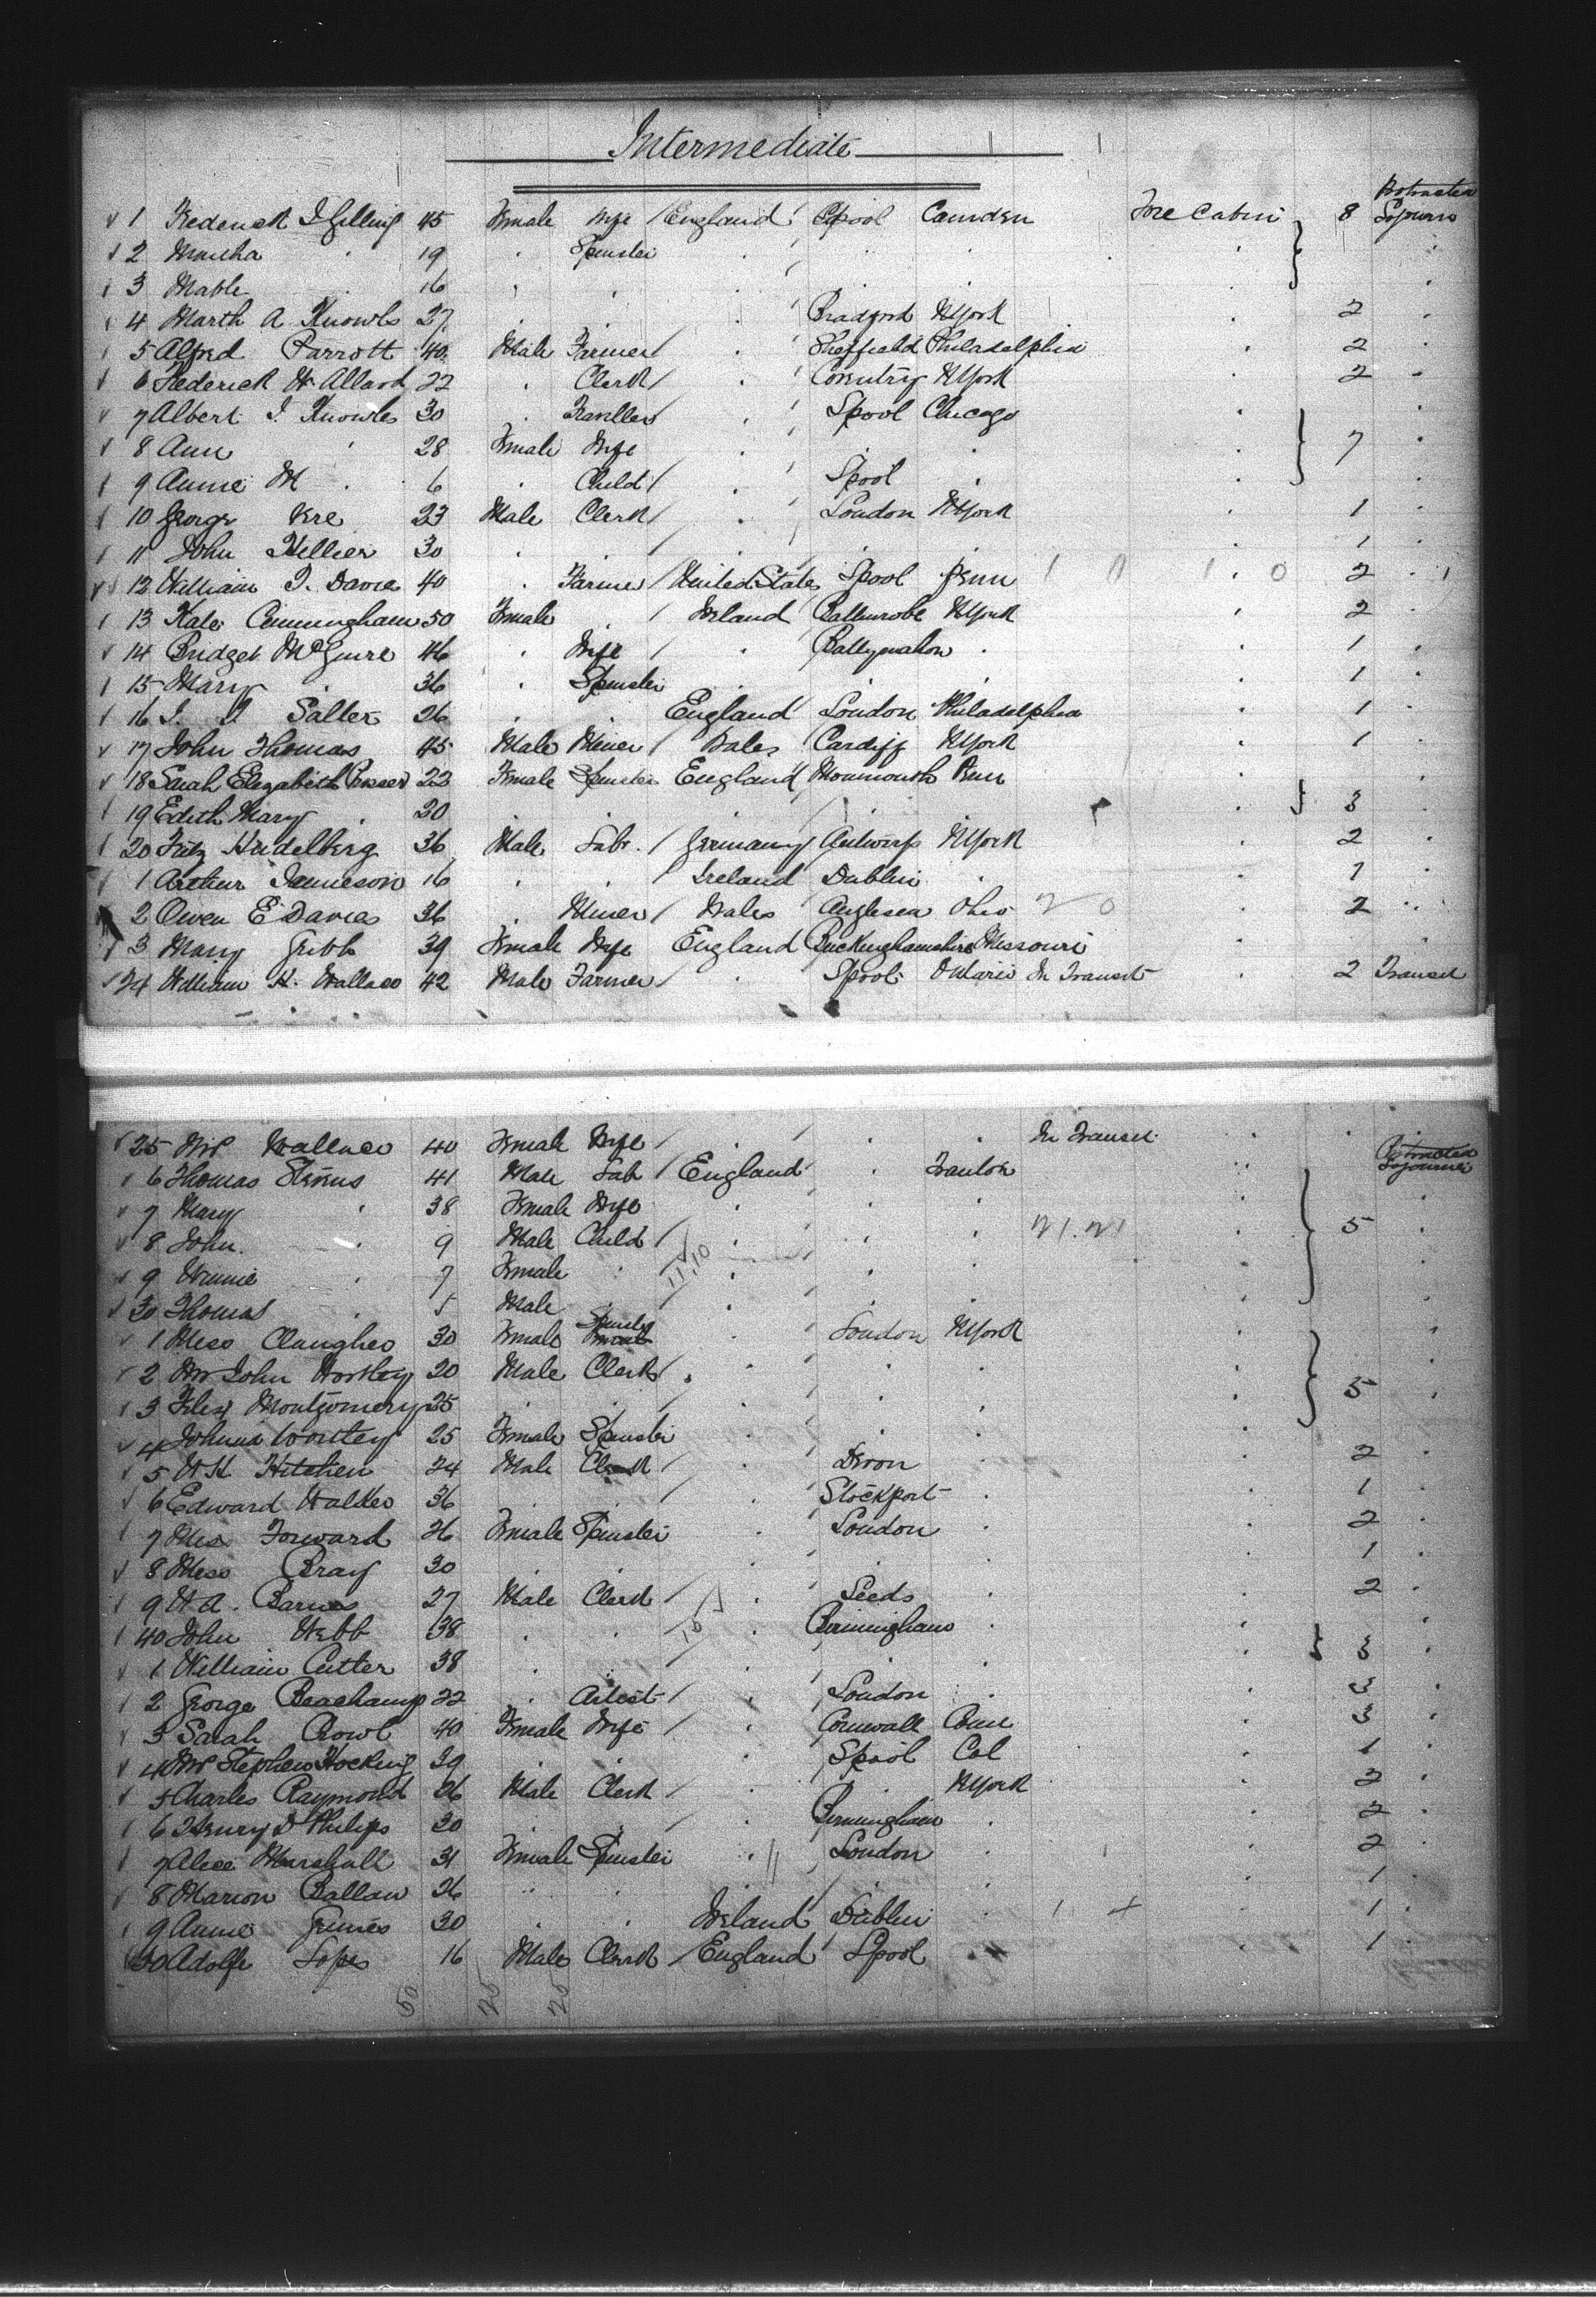 Intermediate
Protracted
1 Frederick J Gelling 45 Female Wife / England Lpool Camden Fore Cabin 8 Sojourn
2 Martha " 19 " Spinster
3 Mable 16
4 Marth A Knowls 27 Bradford NYork 2
5 Alfred Parrott 40 Male Farmer / Sheffield Philadelphia 2
6 Federick W Allard 22 Clerk / Coventry NYork 2
7 Albert J. Knowles 30 Traveller Lpool Chicago
8 Ann 28 Female Wife 7
9 Annie M 6 Child / Lpool
10 George 23 Male Clerk / London NYork 1
11 John Hellier 30 / 1
12 William J. Davies 40 Farmer / United States Lpool Penn 2
13 Kate Cunningham 50 Female / Ireland Ballinrobe NYork 2
14 Bridget McGuire 46 Wife / Ballymahon 1
15 Mary 36 Spinster 1
16 J. J Salter 26 England London Philadelphia 1
17 John Thomas 45 Male Miner / Wales Cardiff NYork 1
18 Sarah Elizabeth Prosser 22 Female Spinster England Monmouth Penn
19 Edith Mary 20 3
20 Fritz Heidelberg 36 Male Labr. / Germany Antwerp NYork 2
1 Arthur Jamieson 16 / Ireland Dublin 1
2 Owen E Davies 36 Miner / Wales Anglesea Ohio 2 0 2
3 Mary Gibb 39 Female Wife England Buckinghamshire Missouri
24 William H. Wallace 42 Male Farmer / Lpool Ontario In Transit 2 Transit
25 Mrs Wallace 40 Female Wife / In Transit
Protracted
6 Thomas 41 Male Lab / England Trenton Sojourner
7 Mary 38 Female Wife
8 John 9 Male Child / 5
9 Winnie 7 Female 11,10
30 Thomas 5 Male
1 Miss 30 Female Spinster London NYork
2 Mr John Wortley 20 Male Clerk
3 Montgomery 25 5
4 Johnna Wortley 25 Female Spinster
5 W H Hitchen 24 Male Clerk / Devon 2
6 Edward Walker 36 / Stockport 1
7 Miss Forward 26 Female Spinster London 2
8 Miss Bray 30 1
9 W A. Barnes 27 Male Clerk / Leeds 2
40 John Webb 38 10 Birmingham
1 William Cutter 38 3
2 George Beachamp 22 Artist / London 3
3 Sarah Crowl 40 Female Wife / Cornwall Conn 3
4 Mrs Stephen Hocking 39 Lpool Cal 1
5 Charles Raymond 26 Male Clerk / NYork 2
6 Henry D Philips 30 / Birmingham 2
7 Alice Marshall 31 Female Spinster London 2
8 Marion Ballan 26 1
9 Annie Grimes 30 Ireland Dublin 1
50 Adolfe Lopes 16 Male Clerk / England Lpool 1
50 25 25